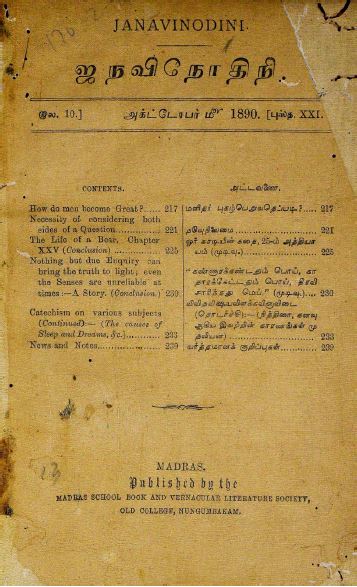 JANAVINODINI.
ஜநவிநோதினி.
இல. 10.] அக்டோபர் மீ 1890. [புஸ்த. XXI.
CONTENTS.
How do men become Great?...... 217
Necessity of considering both
sides of a Question............ 221
The Life of a Bear, Chapter
XXV (Conclusion) ............ 225
Nothing but due Enquiry can
bring the truth to light; even
the Senses are unreliable at
times:—A Story. (Conclusion.) 230
Catechism on various subjects
(Continued):— (The causes of
Sleep and Dreams, &c.)......... 233
News and Notes.................. 239
அட்டவணை.
மனிதர் புகழ்பெறுவதெப்படி?..... 217
221
ஓர் கரடியின் கதை, 25-ம் அத்தியா
யம் (முடிவு.)............ 225
"கண்ணாற்கண்டதும் பொய், கா
தாரக்கேட்டதும் பொய், திரவி
சாரித்தது மெய்." (முடிவு.).... 230
விவிதவிஷயவினாவிடை
(தொடர்ச்சி):—(நித்திரை, கனவு
ஆகிய இவற்றின் காரணங்கள் மு
தலியன) 233
வர்த்தமானக் குறிப்புகள்............ 239
MADRAS.
Published by the
MADRAS SCHOOL BOOK AND VERNACULAR LITERATURE SOCIETY,
OLD COLLEGE, NUNGUMBAKAM.